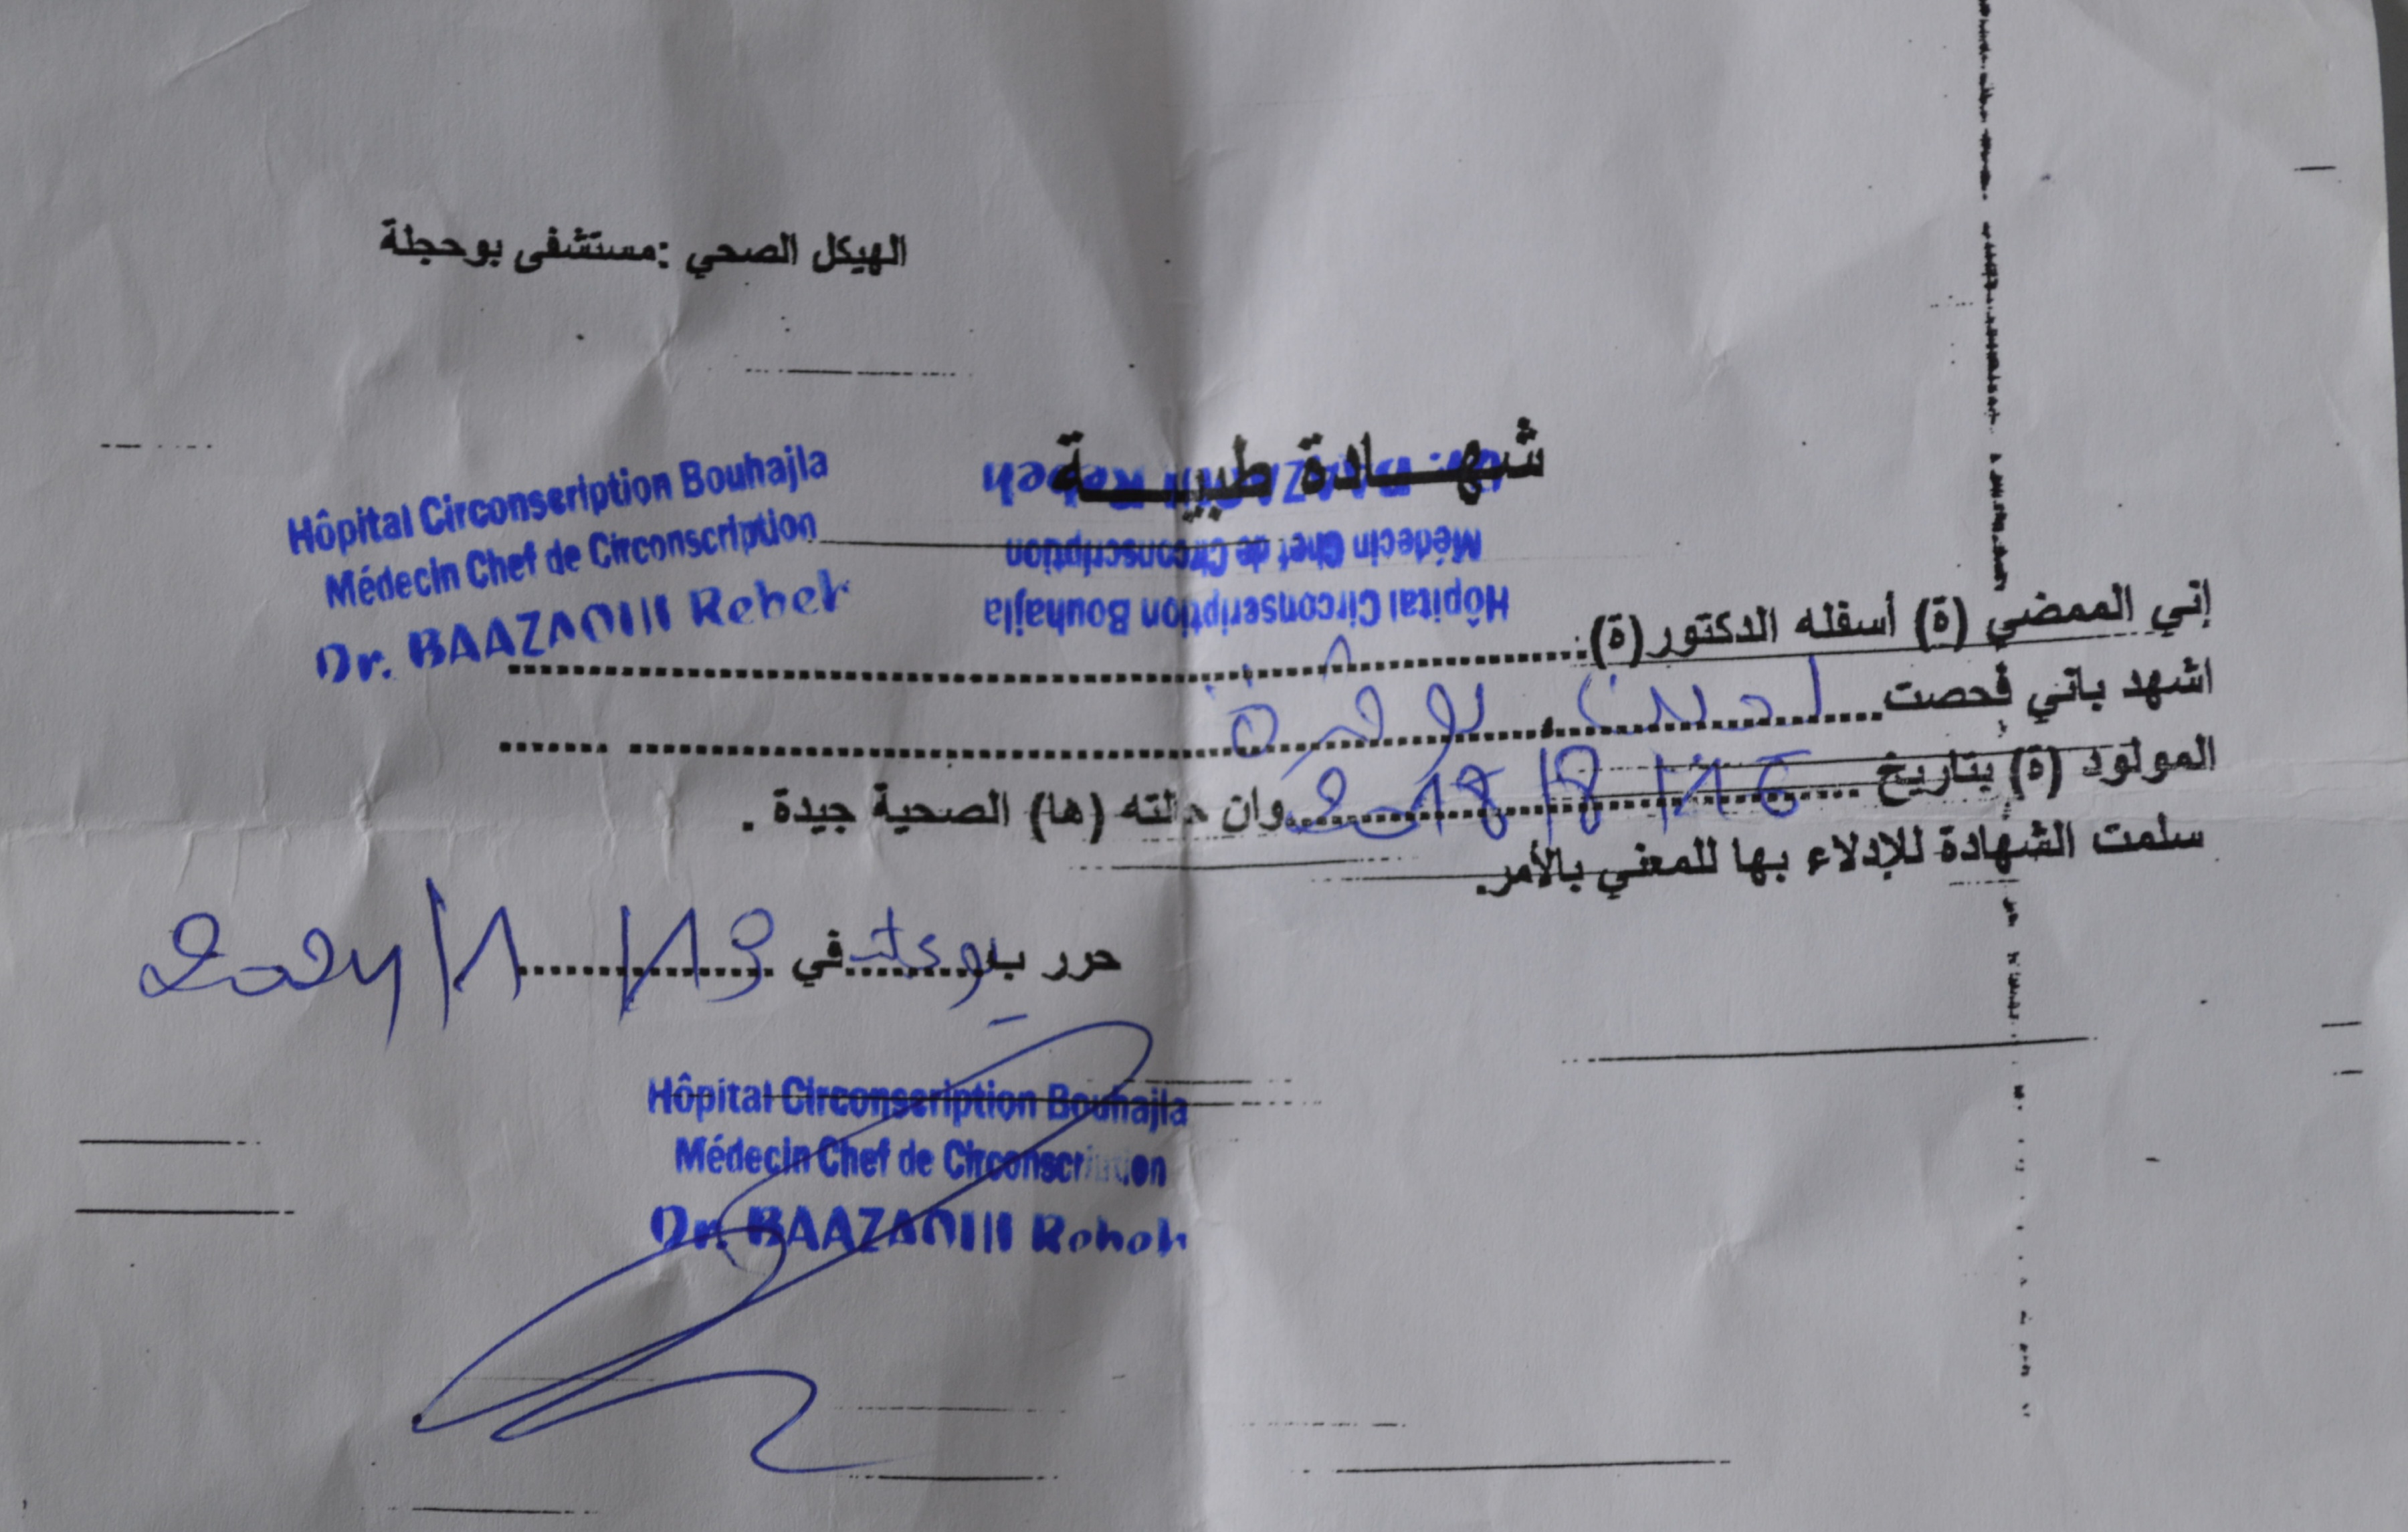 الهيكل الصحي :مستشفى بوحجلة
شهـــادة طبيـــة
Hôpital Circonseription Bouhajla
Médecin Chef de Circonscription
Dr. BAAZAOUI Rebeh
Dr. BAAZAOUI Rebeh
Médecin Chef de Circonscription
Hôpital Circonseription Bouhajla
إني الممضي (ة) أسفله الدكتور(ة):
اشهد باني فحصت
المولود (ة) بتاريخ 2018/8/16 وان حالته (ها) الصحية جيدة .
سلمت الشهادة للإدلاء بها للمعني بالأمر.
حرر ب في 2024/1/13
Hôpital Circonseription Bouhajla
Médecin Chef de Circonscription
Dr. BAAZAOUI Rebeh